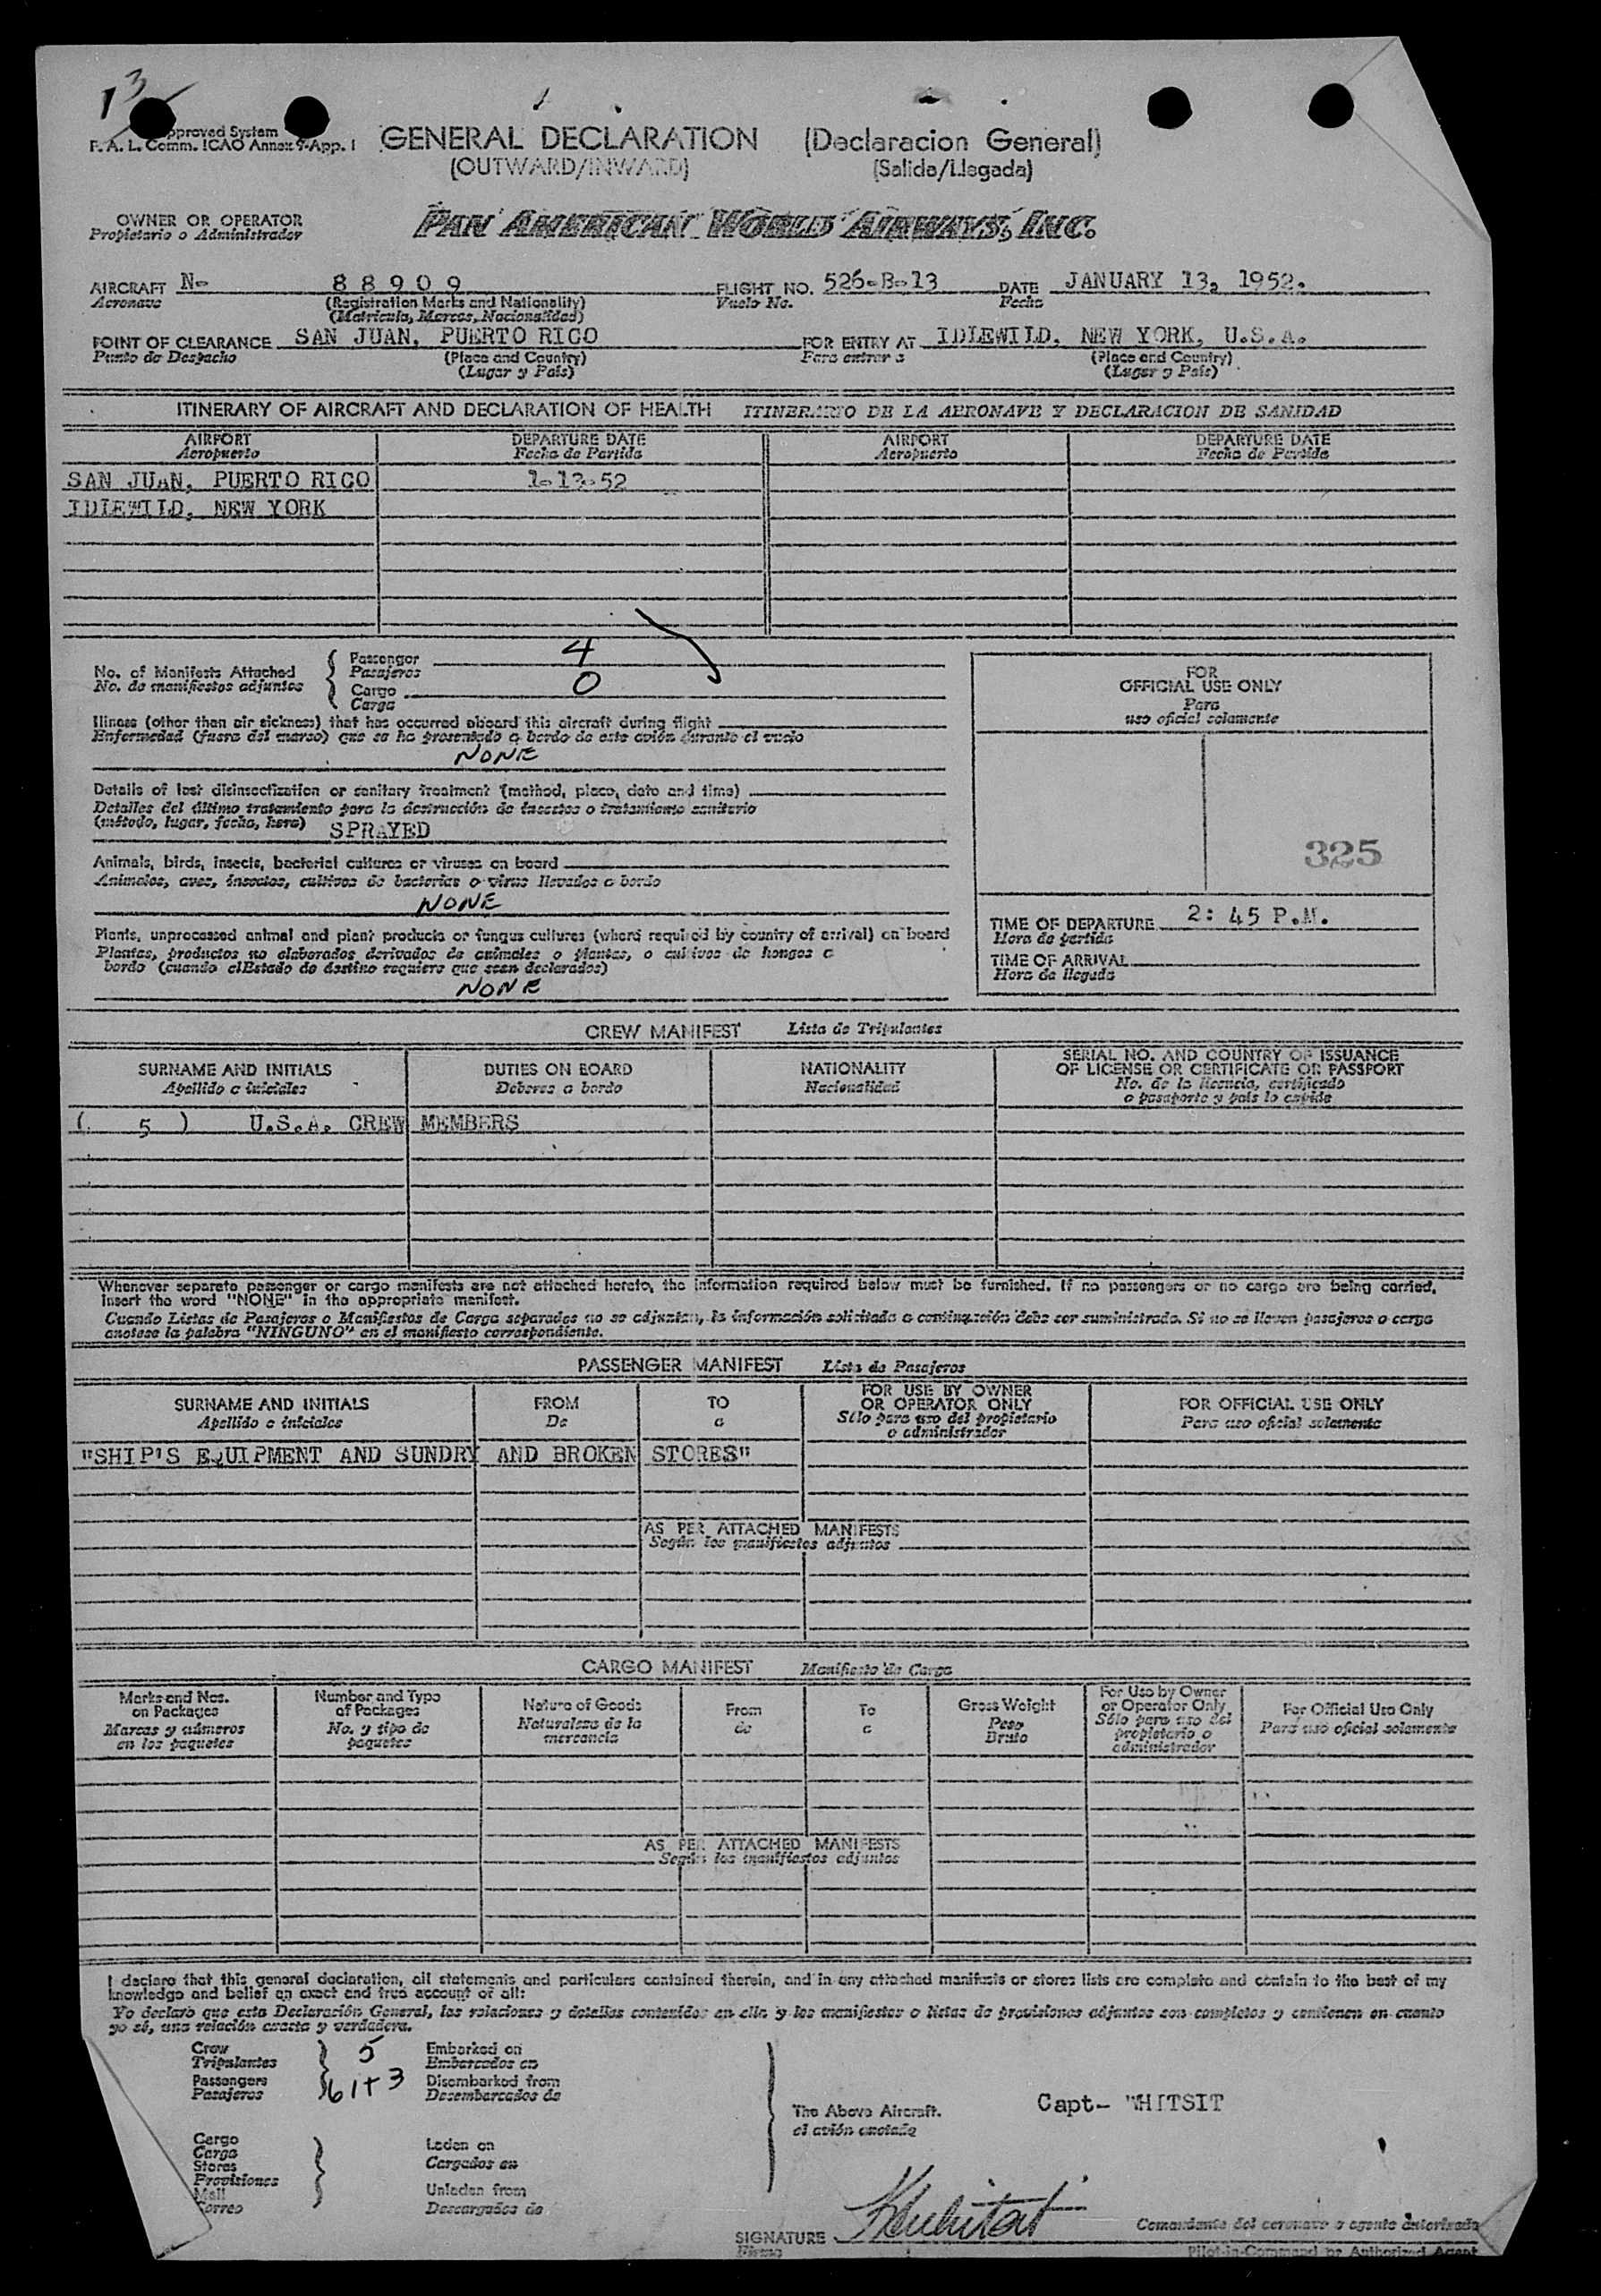 13
Approved System
F. A. L. Comm. ICAO Annex 9-App. I
GENERAL DECLARATION (Declaracion General)
(OUTWARD/INWARD) (Salida/Llegada)
OWNER OR OPERATOR
Propietario o Administrador
PAN AMERICAN WORLD AIRWAYS, INC.
AIRCRAFT N- 88909 FLIGHT NO. 526-B-13 DATE JANUARY 13, 1952.
Aeronave (Registration Marks and Nationality) Vuelo No. Fecha
(Matricula, Marcas, Nacionalidad)
POINT OF CLEARANCE SAN JUAN, PUERTO RICO FOR ENTRY AT IDLEWILD, NEW YORK, U.S.A.
Punto de Despacho (Place and Country) Para entrar a (Place and Country)
(Lugar y Pais) (Lugar y Pais)
ITINERARY OF AIRCRAFT AND DECLARATION OF HEALTH ITINERARIO DE LA AERONAVE Y DECLARACION DE SANIDAD
AIRPORT DEPARTURE DATE AIRPORT DEPARTURE DATE
Aeropuerto Fecha de Partida Aeropuerto Fecha de Partida
SAN JUAN, PUERTO RICO 1-13-52
IDLEWILD, NEW YORK
No. of Manifests Attached Passenger 4
No. de manifiestos adjuntos Pasajeros
Cargo 0
Carga
Illness (other than air sickness) that has occurred aboard this aircraft during flight
Enfermedad (fuera del mareo) que se ha presentado a bordo de este avión durante el vuelo
NONE
Details of last disinsectization or sanitary treatment (method, place, date and time)
Detalles del último tratamiento para la destrucción de insectos o tratamiento sanitario
(método, lugar, fecha, hora) SPRAYED
Animals, birds, insects, bacterial cultures or viruses on board
Animales, aves, insectos, cultivos de bacterias o virus llevados a bordo
NONE
Plants, unprocessed animal and plant products or fungus cultures (where required by country of arrival) on board
Plantas, productos no elaborados derivados de animales o plantas, o cultivos de hongos a
bordo (cuando el Estado de destino requiere que sean declarados)
NONE
FOR
OFFICIAL USE ONLY
Para
uso oficial solamente
325
TIME OF DEPARTURE 2:45 P.M.
Hora de partida
TIME OF ARRIVAL
Hora de llegada
CREW MANIFEST Lista de Tripulantes
SURNAME AND INITIALS DUTIES ON BOARD NATIONALITY SERIAL NO. AND COUNTRY OF ISSUANCE
Apellido e iniciales Deberes a bordo Nacionalidad OF LICENSE OR CERTIFICATE OR PASSPORT
No. de la licencia, certificado
o pasaporte y pais lo expide
( 5 ) U.S.A. CREW MEMBERS
Whenever separate passenger or cargo manifests are not attached hereto, the information required below must be furnished. If no passengers or no cargo are being carried,
insert the word "NONE" in the appropriate manifest.
Cuando Listas de Pasajeros o Manifiestos de Carga separados no se adjuntan, la información solicitada a continuación debe ser suministrada. Si no se llevan pasajeros o carga
anotese la palabra "NINGUNO" en el manifiesto correspondiente.
PASSENGER MANIFEST Lista de Pasajeros
SURNAME AND INITIALS FROM TO FOR USE BY OWNER FOR OFFICIAL USE ONLY
Apellido e iniciales De a OR OPERATOR ONLY Para uso oficial solamente
Sólo para uso del propietario
o administrador
"SHIP'S EQUIPMENT AND SUNDRY AND BROKEN STORES"
AS PER ATTACHED MANIFESTS
Según los manifiestos adjuntos
CARGO MANIFEST Manifiesto de Carga
Marks and Nos. Number and Type Nature of Goods From To Gross Weight For Use by Owner For Official Use Only
on Packages of Packages Naturaleza de la de a Peso or Operator Only Para uso oficial solamente
Marcas y números No. y tipo de mercancia Bruto Sólo para uso del
en los paquetes paquetes propietario o
administrador
AS PER ATTACHED MANIFESTS
Según los manifiestos adjuntos
I declare that this general declaration, all statements and particulars contained therein, and in any attached manifests or stores lists are complete and contain to the best of my
knowledge and belief an exact and true account of all:
Yo declaro que esta Declaración General, las relaciones y detalles contenidos en ella y los manifiestos o listas de provisiones adjuntos son completos y contienen en cuanto
yo sé, una relación exacta y verdadera.
Crew 5 Embarked on
Tripulantes Embarcados en
Passengers 61+3 Disembarked from
Pasajeros Desembarcados de
The Above Aircraft. Capt- WHITSIT
el avión anotado
Cargo
Carga Laden on
Stores Cargados en
Provisiones
Mail Unladen from
Correo Descargados de
SIGNATURE Comandante del aeronave o agente autorizado
Firma Pilot-in-Command or Authorized Agent